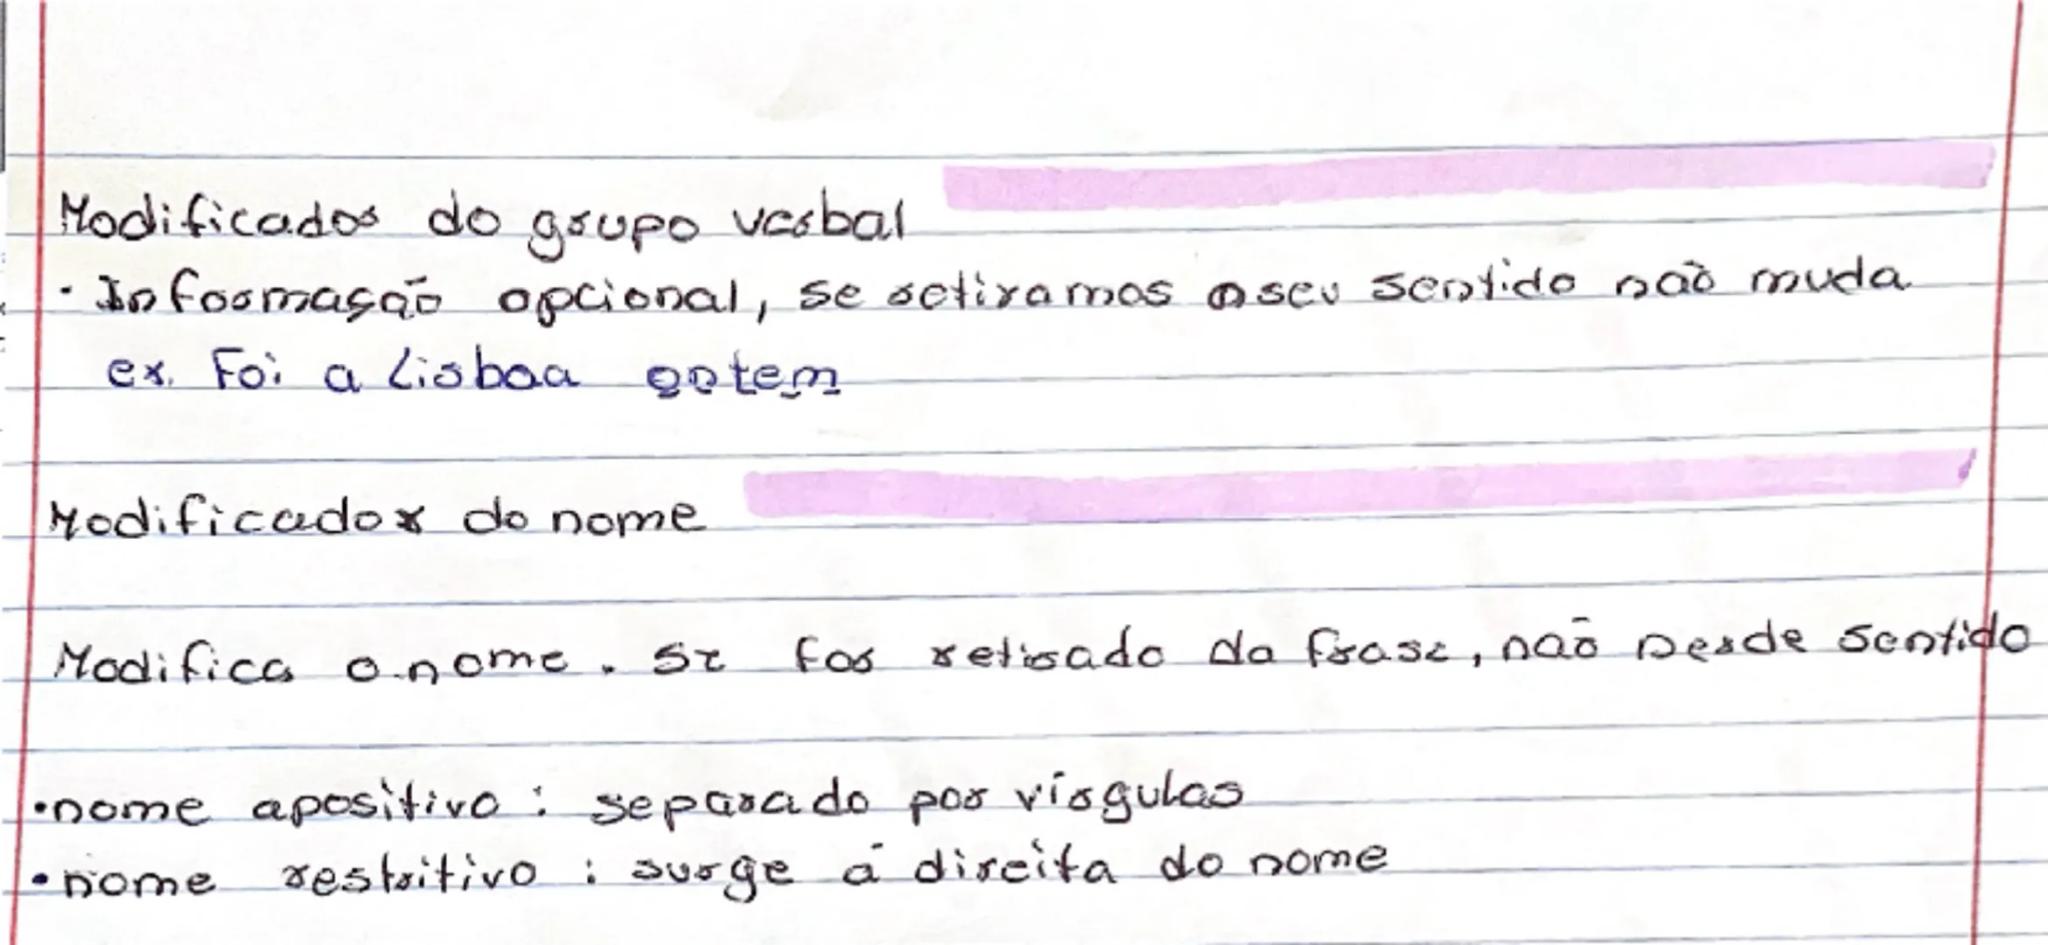 Modificador do grupo verbal
• Informação opcional, se retiramos o seu sentido não muda
ex. Foi a Lisboa ontem
Modificador do nome
Modifica o nome. Se for retirado da frase, não perde sentido
• nome apositivo : separado por vírgulas
• nome restritivo : surge á direita do nome